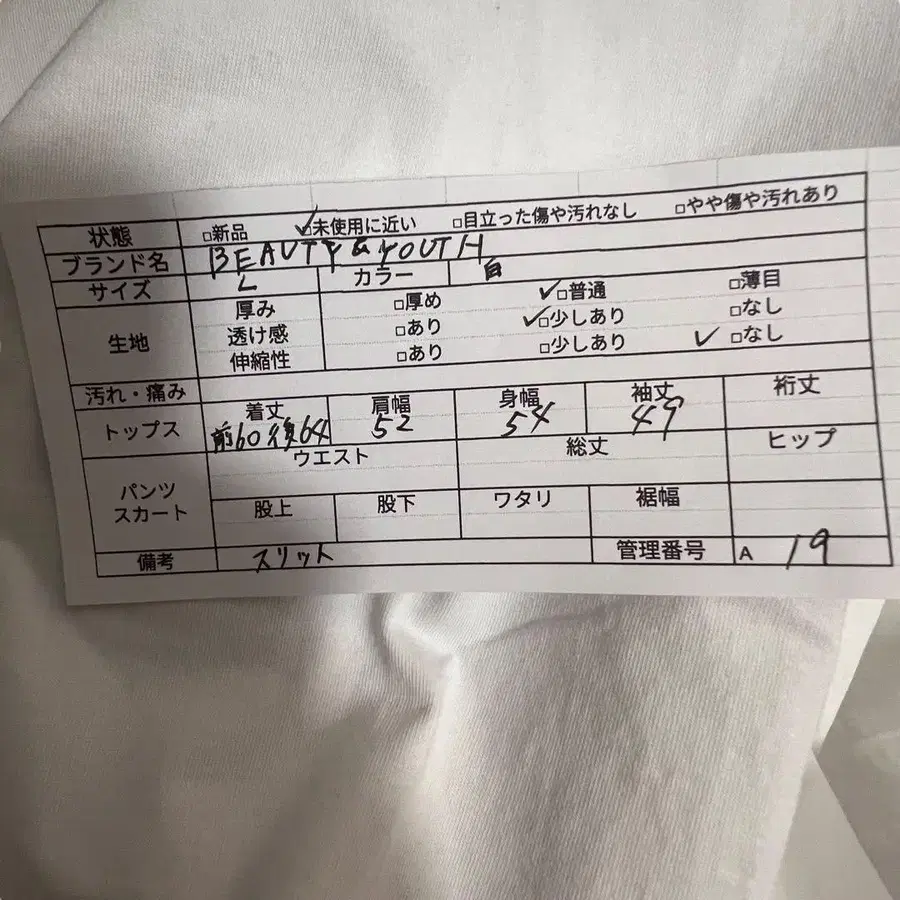 状態 □新品 ✓未使用に近い □目立った傷や汚れなし □やや傷や汚れあり
ブランド名 BEAUTY & YOUTH
サイズ L カラー 白
生地 厚み □厚め ✓□普通 □薄目
透け感 □あり ✓□少しあり □なし
伸縮性 □あり □少しあり ✓□なし
汚れ・痛み
トップス 着丈 肩幅 身幅 袖丈 裄丈
前60後64 52 54 49
パンツ スカート ウエスト 総丈 ヒップ
股上 股下 ワタリ 裾幅
備考 スリット 管理番号 A 19